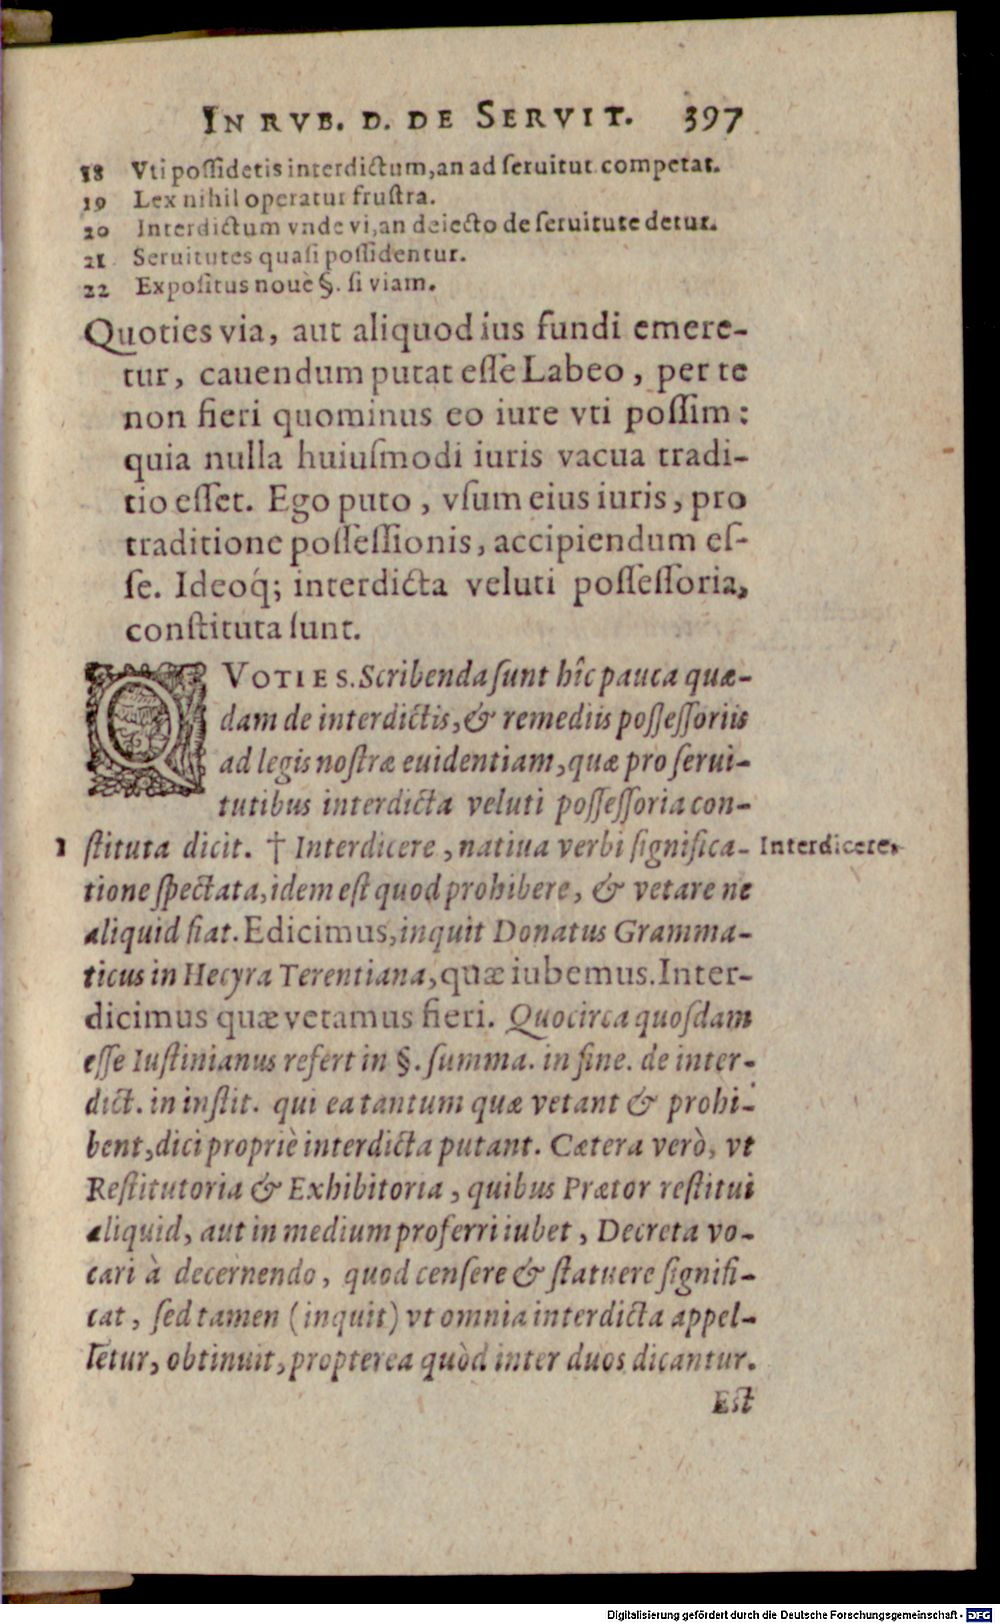 IN RVB. D. DE SERVIT. 397
18 Vti possidetis interdictum, an ad seruitut. competat.
19 Lex nihil operatur frustra.
20 Interdictum vnde vi, an deiecto de seruitute detur.
21 Seruitutes quasi possidentur.
22 Expositus nouè §. si viam.
Quoties via, aut aliquod ius fundi emere-
tur, cauendum putat esse Labeo, per te
non fieri quominus eo iure vti possim:
quia nulla huiusmodi iuris vacua tradi-
tio esset. Ego puto, vsum eius iuris, pro
traditione possessionis, accipiendum es-
se. Ideoq́; interdicta veluti possessoria,
constituta sunt.
QVOTIES. Scribenda sunt hîc pauca quæ-
dam de interdictis, & remediis possessoriis
ad legis nostræ euidentiam, quæ pro serui-
tutibus interdicta veluti possessoria con-
1 stituta dicit. † Interdicere, natiua verbi significa- Interdicere.
tione spectata, idem est quod prohibere, & vetare ne
aliquid fiat. Edicimus, inquit Donatus Gramma-
ticus in Hecyra Terentiana, quæ iubemus. Inter-
dicimus quæ vetamus fieri. Quocirca quosdam
esse Iustinianus refert in §. summa. in fine. de inter-
dict. in instit. qui ea tantum quæ vetant & prohi-
bent, dici propriè interdicta putant. Cætera verò, vt
Restitutoria & Exhibitoria, quibus Prætor restitui
aliquid, aut in medium proferri iubet, Decreta vo-
cari à decernendo, quod censere & statuere signifi-
cat, sed tamen (inquit) vt omnia interdicta appel-
letur, obtinuit, propterea quòd inter duos dicantur.
Est
Digitalisierung gefördert durch die Deutsche Forschungsgemeinschaft - DFG